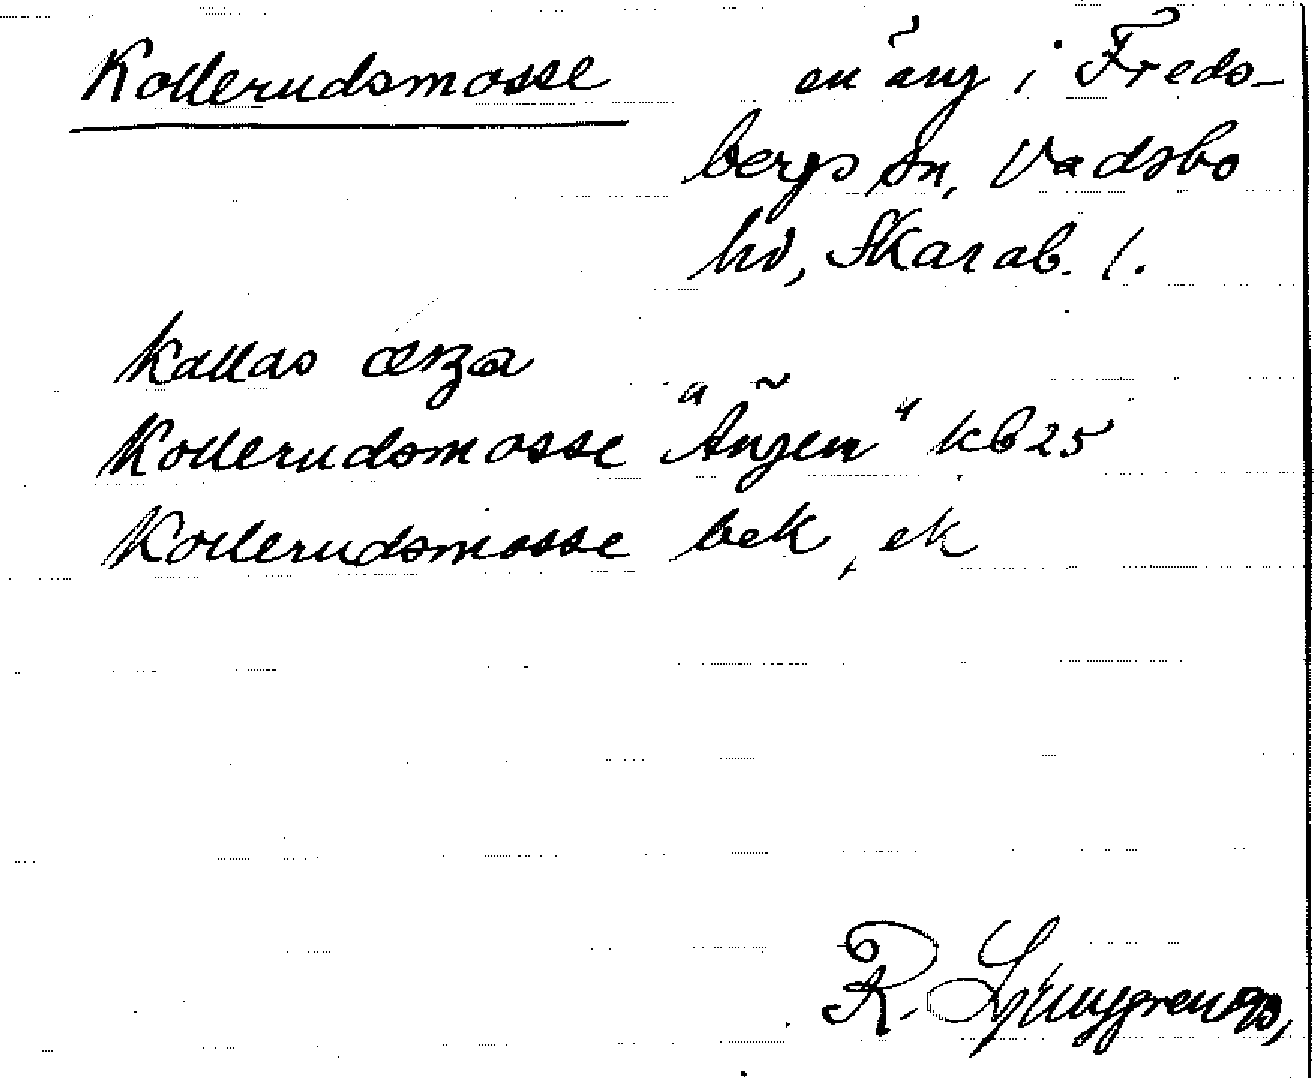 Kollerudsmosse en äng i Freds-
bergs sn, Vadsbo
hd, Skarab. l.
Kallas
Kollerudsmosse "Ängen" kb 25
Kollerudsmosse bek, ek
R. Ljunggren